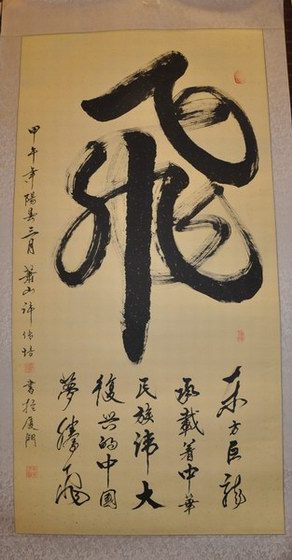 飛
东方巨龍
承載着中華
民族偉大
復興的中國
夢騰飛
甲午年陽春三月 蕭山 許 培 書於厦門